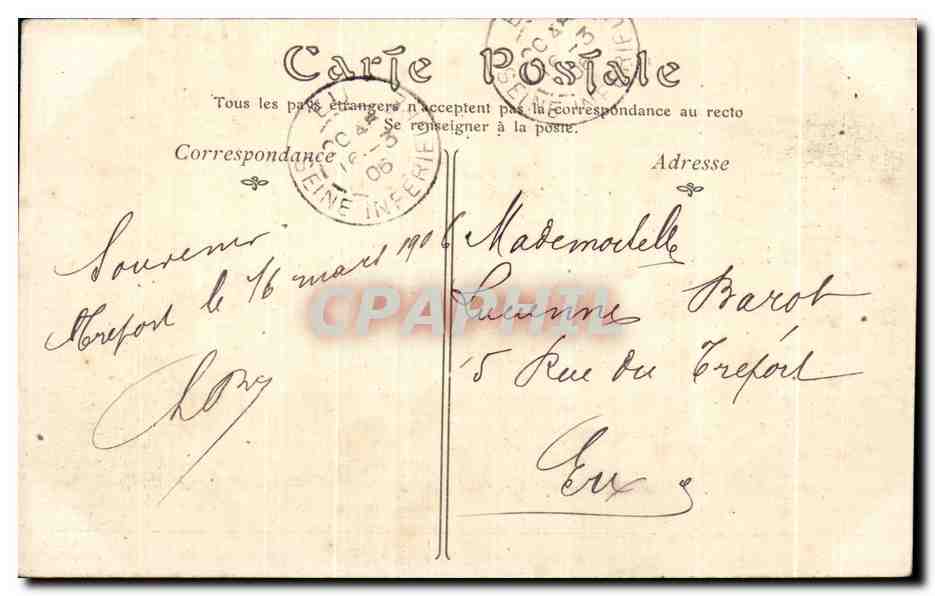 Carte Postale
Tous les pays étrangers n'acceptent pas la correspondance au recto
Se renseigner à la poste.
Correspondance
Adresse
EU
16 - 3
06
SEINE INFERIE
SEINE INFERIE
Souvenir
Treport le 16 mars 1906
Mademoiselle
Lucienne Barot
5 Rue du Treport
Eu
CPAPHIL